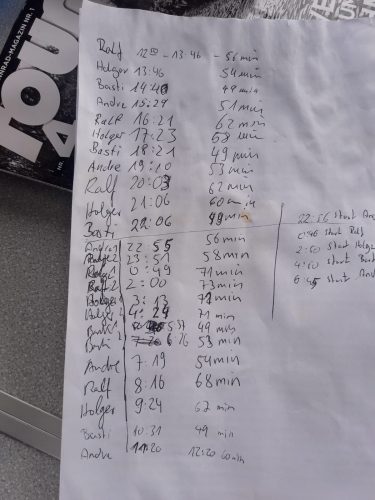 TOUR
RENNRAD-MAGAZIN NR. 1
Ralf 12:50 - 13:46 - 56 min
Holger 13:46 54 min
Basti 14:40 49 min
Andre 15:29 51 min
Ralf 16:21 62 min
Holger 17:23 58 min
Basti 18:21 49 min
Andre 19:10 53 min
Ralf 20:03 62 min
Holger 21:06 60 min
Basti 22:06 49 min
Andre 1 22:55 56 min
23:51 58 min
0:49 71 min
Ralf 2 2:00 73 min
Holger 1 3:13 71 min
Holger 2 4:24 71 min
Basti 1 5:37 49 min
Basti 2 6:26 53 min
Andre 7:19 54 min
Ralf 8:16 68 min
Holger 9:24 67 min
Basti 10:31 49 min
Andre 11:20 12:20 60 min
22:56 Start
0:46 Start Ralf
2:50 Start Holger
Start
6:45 Start